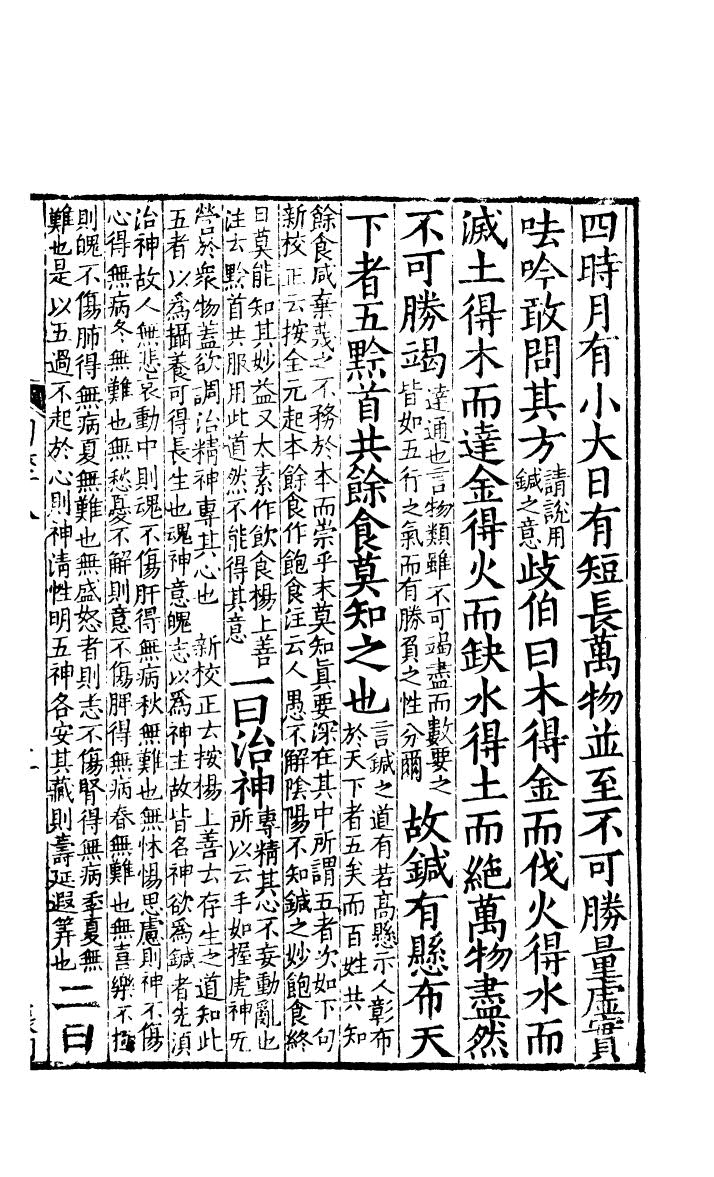 四時月有小大日有短長萬物並至不可勝量虛實
呿吟敢問其方
請說用
鍼之意
歧伯曰木得金而伐火得水而
滅土得木而達金得火而缺水得土而絕萬物盡然
不可勝竭
達通也言物類雖不可竭盡而數要之
皆如五行之氣而有勝負之性分爾
故鍼有懸布天
下者五黔首共餘食莫知之也
言鍼之道有若高懸示人彰布
於天下者五矣而百姓共知
餘食咸棄蔑之不務於本而崇乎末莫知真要深在其中所謂五者次如下句
新校正云按全元起本餘食作飽食注云人愚不解陰陽不知鍼之妙飽食終
日莫能知其妙益又太素作飲食楊上善
注云黔首共服用此道然不能得其意
一曰治神
專精其心不妄動亂也
所以云手如握虎神无
營於衆物蓋欲調治精神專其心也 新校正云按楊上善云存生之道知此
五者以爲攝養可得長生也魂神意魄志以爲神主故皆名神欲爲鍼者先須
治神故人無悲哀動中則魂不傷肝得無病秋無難也無怵惕思慮則神不傷
心得無病冬無難也無愁憂不解則意不傷脾得無病春無難也無喜樂不極
則魄不傷肺得無病夏無難也無盛怒者則志不傷腎得無病季夏無
難也是以五過不起於心則神清性明五神各安其藏則壽延遐筭也
二曰